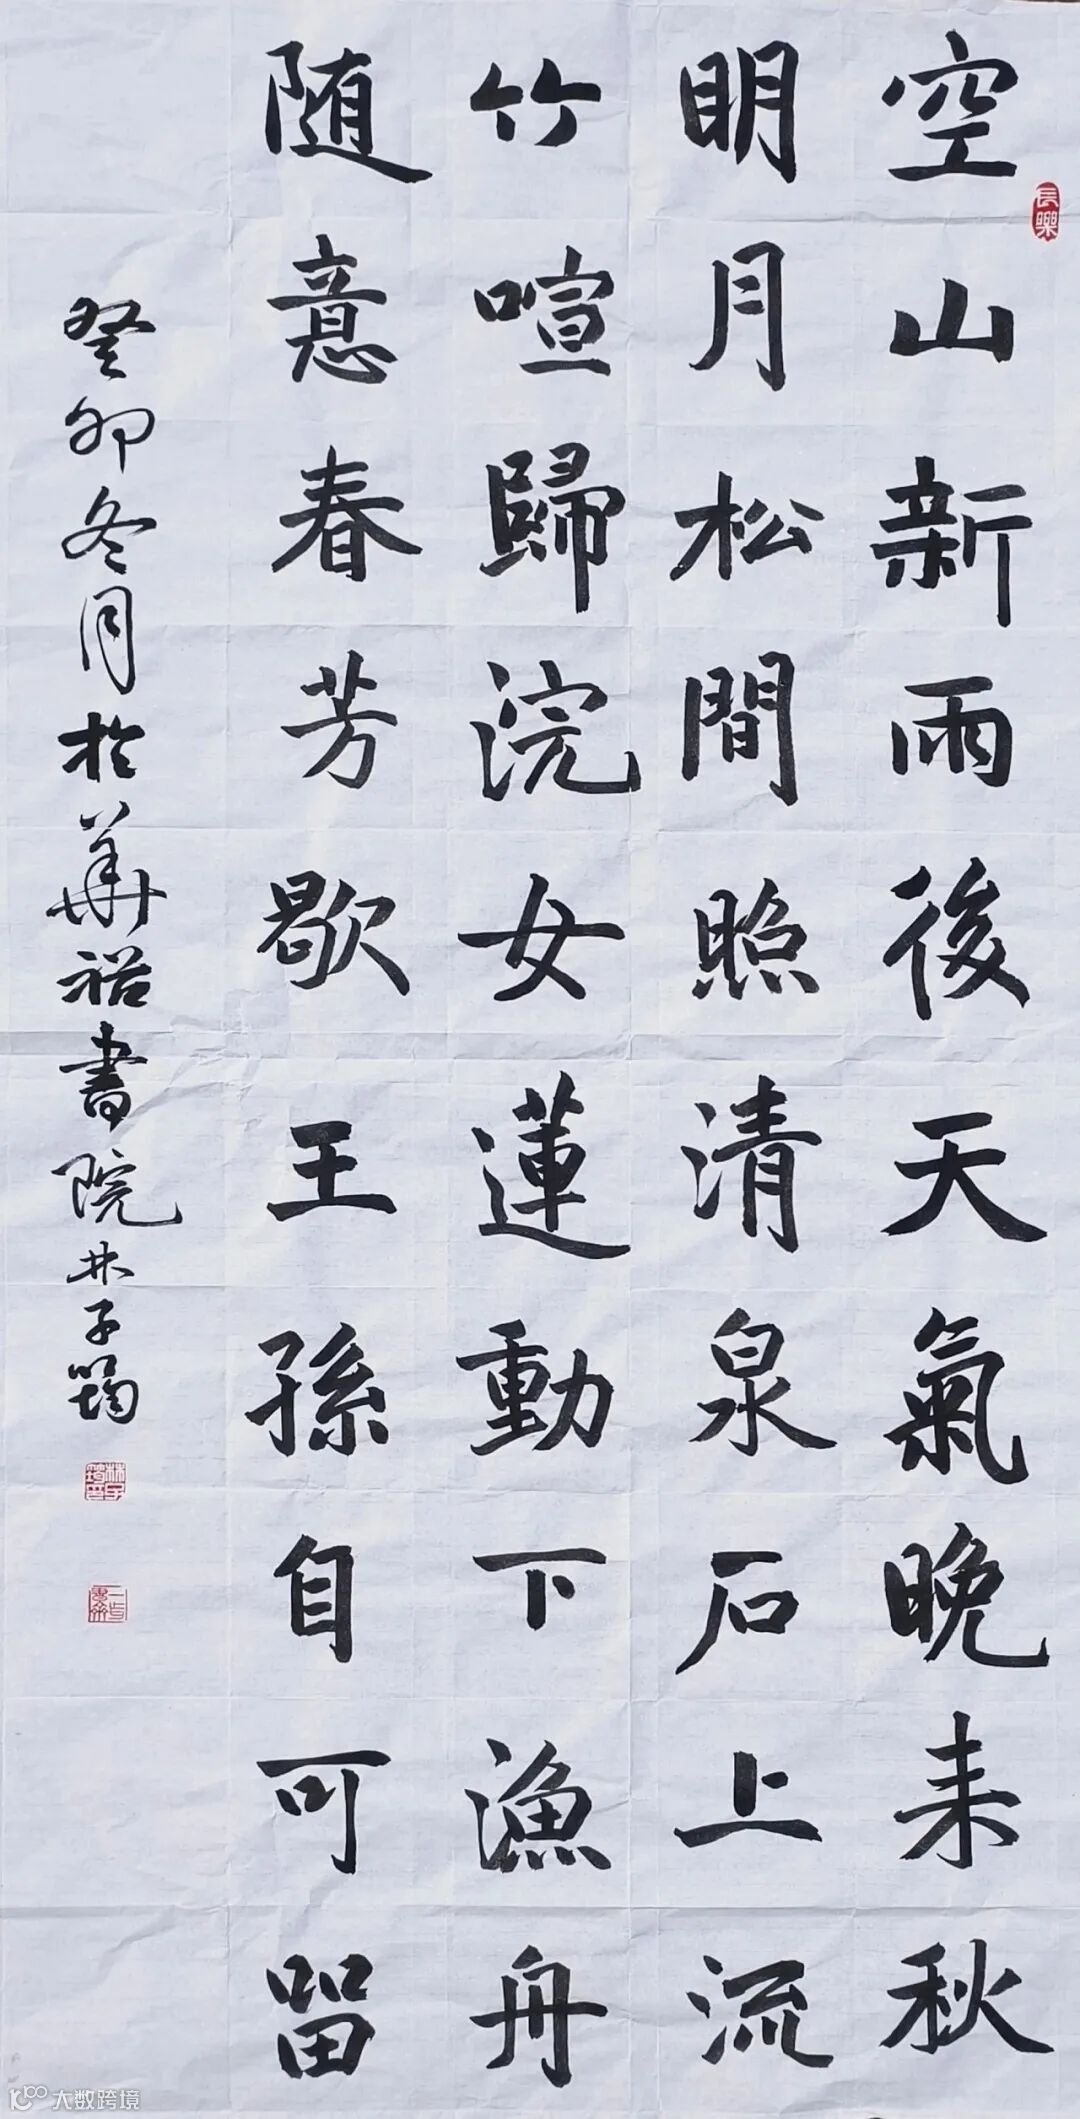 空山新雨後天氣晚来秋
明月松間照清泉石上流
竹喧歸浣女蓮動下漁舟
随意春芳歇王孫自可留
癸卯冬月於華裕書院林子筠
長樂
大数跨境